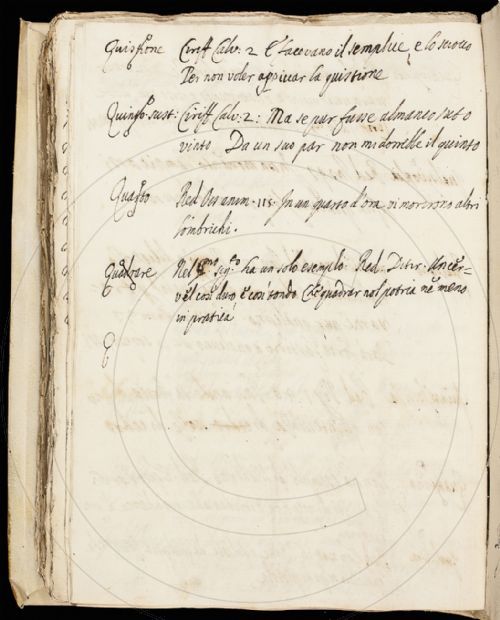 Quistione Ciriff Calv: 2 E taceuano il semplice, e lo sciocco
Per non voler appiccar la quistione
Quinto sust: Ciriff Calv: 2: Ma se pur fusse almanco suto
vinto Da un suo par non mi dorrebbe il quinto
Quarto Red. Oss anim. 115. In un quarto d'ora vi morirono altri
lombrichi.
Quadrare Nel ha un solo esempio. Red. Ditir. Un cer=
vel così duro, e così tondo Che quadrar nol potria ne meno
in pratica